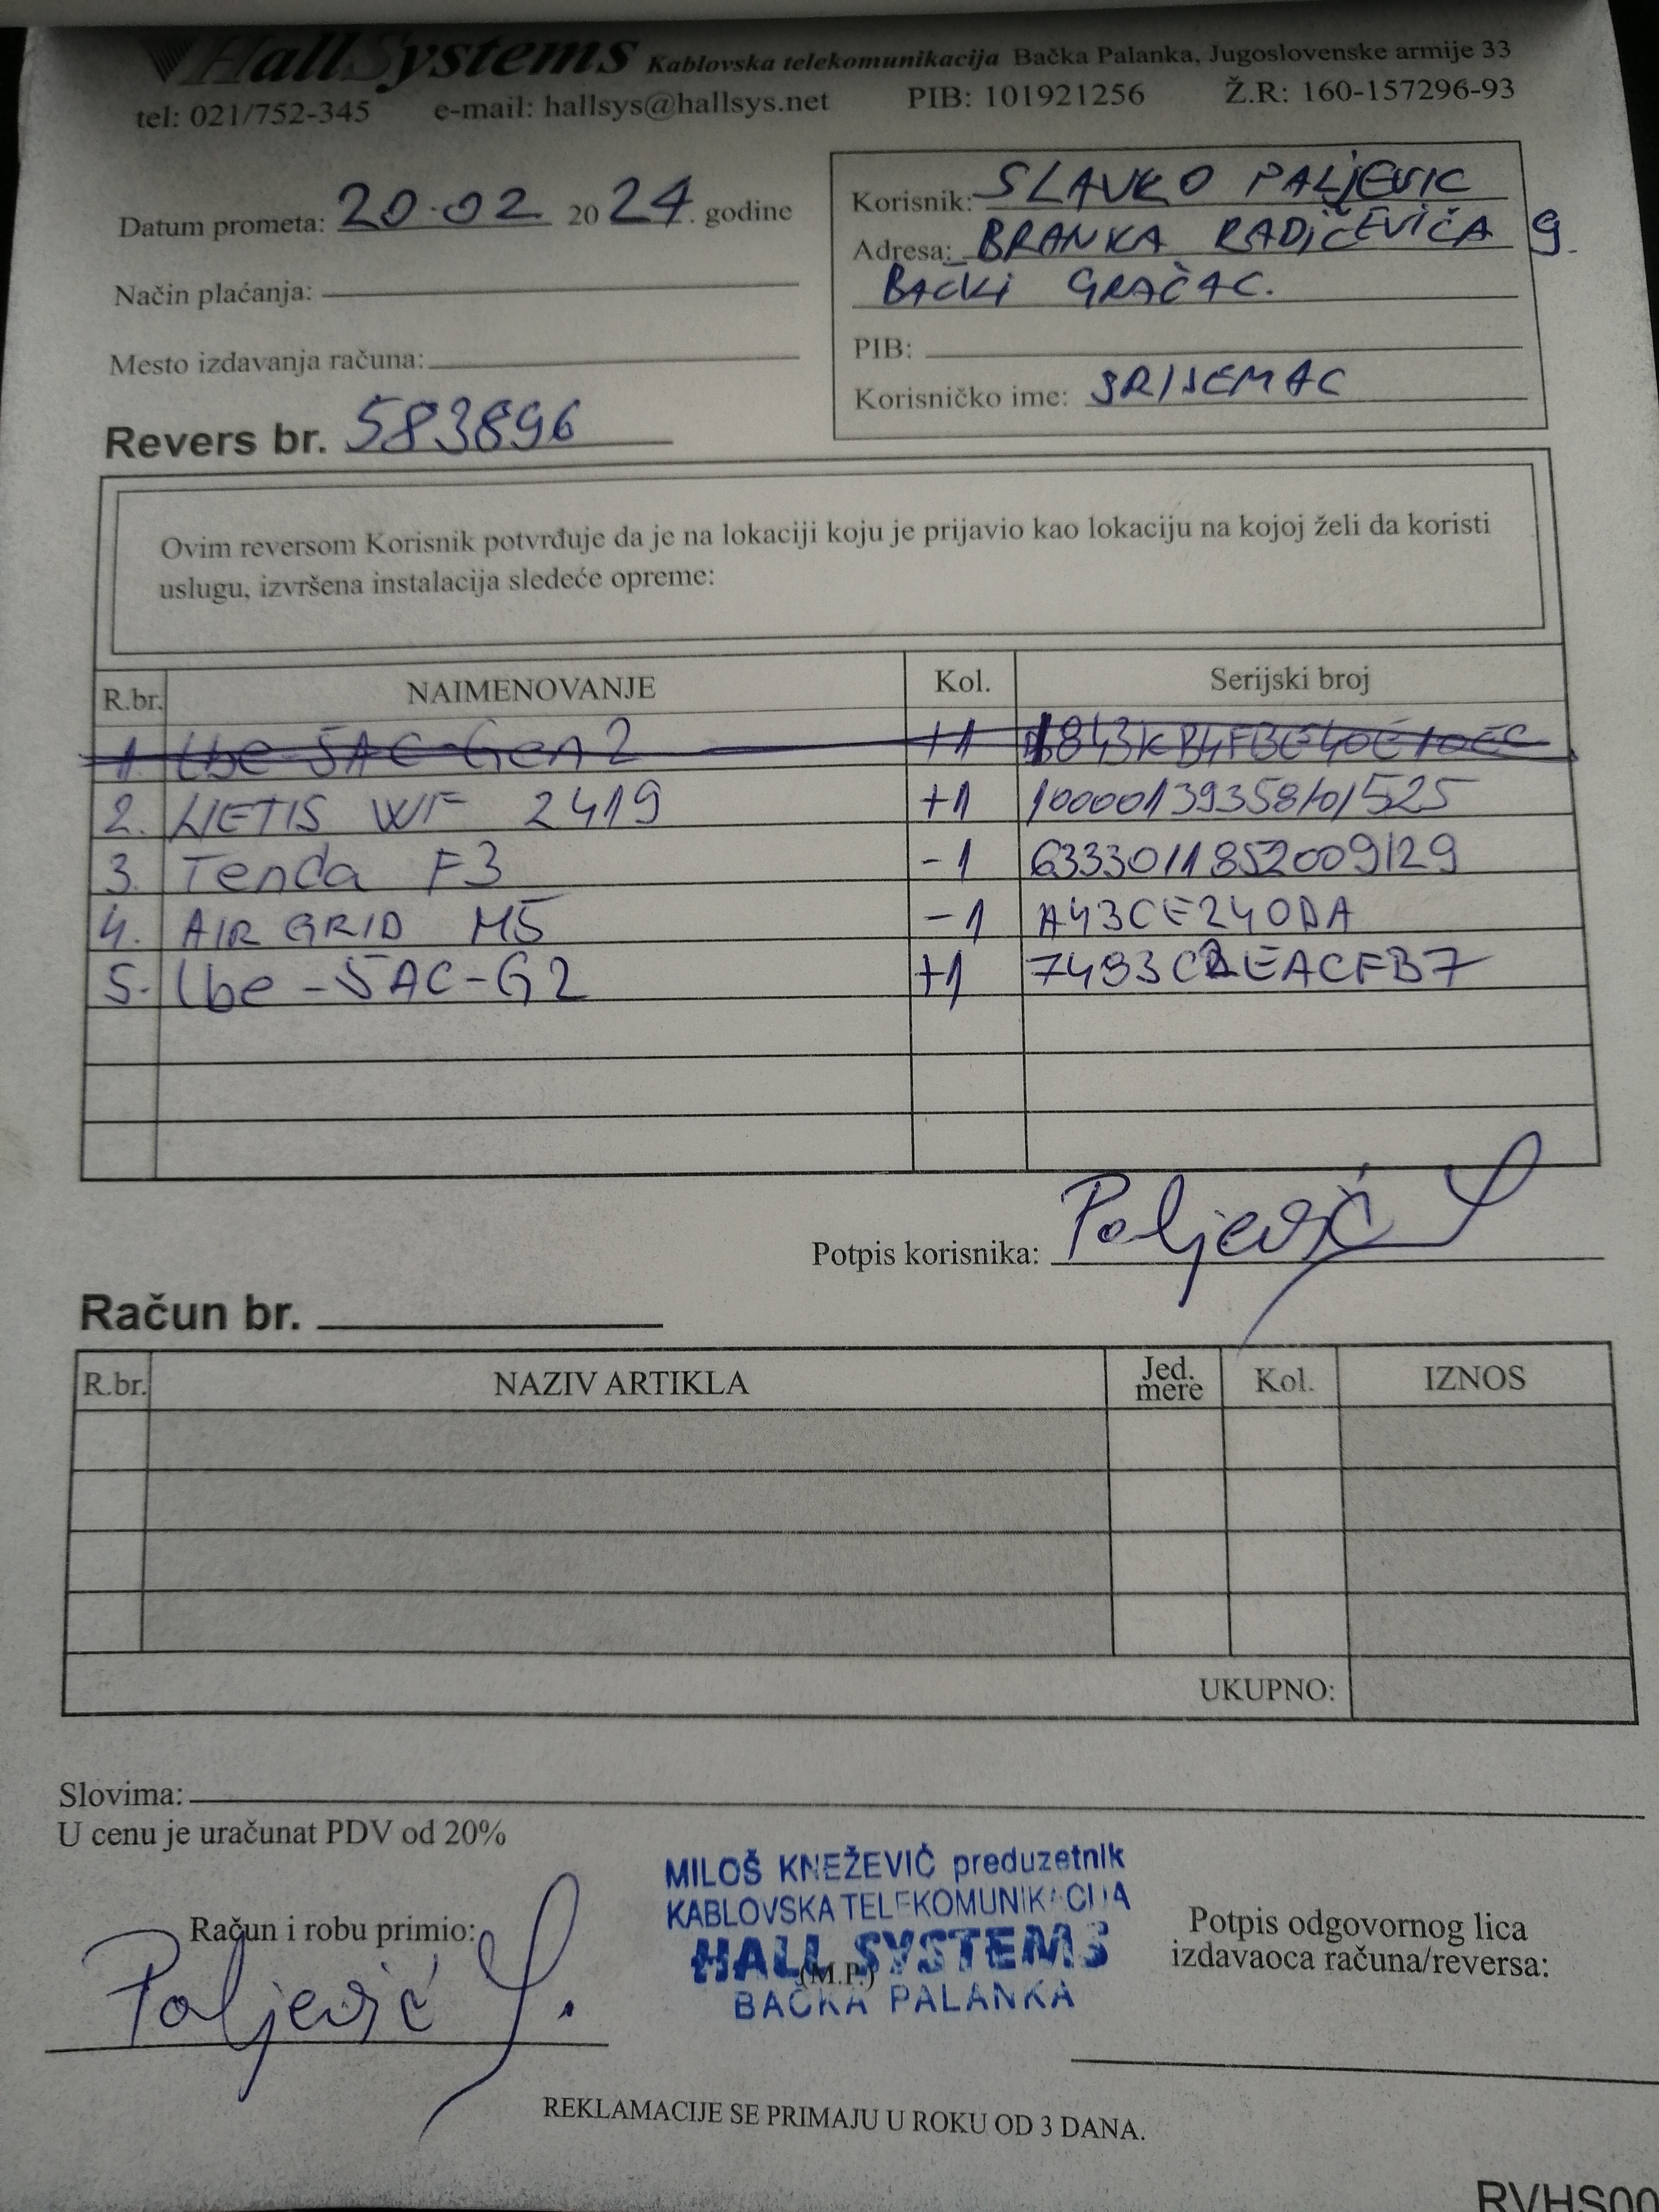 HallSystems Kablovska telekomunikacija Bačka Palanka, Jugoslovenske armije 33
tel: 021/752-345 e-mail: hallsys@hallsys.net PIB: 101921256 Ž.R: 160-157296-93
Datum prometa: 20.02 2024. godine
Način plaćanja:
Mesto izdavanja računa:
Revers br. 583896
Korisnik: SLAVKO PALJEVIC
Adresa: BRANKA RADIČEVIĆA 9.
BAČKI GRAČAC.
PIB:
Korisničko ime: SRIJEMAC
Ovim reversom Korisnik potvrđuje da je na lokaciji koju je prijavio kao lokaciju na kojoj želi da koristi
uslugu, izvršena instalacija sledeće opreme:
R.br. NAIMENOVANJE Kol. Serijski broj
1. Lbe-5AC-Gen2 +1
2. NETIS WF 2419 +1 10000139358101525
3. Tenda F3 -1 6333011852009129
4. AIR GRID M5 -1 A43CE240DA
5. Lbe-5AC-G2 +1
Potpis korisnika: Paljević S
Račun br.
R.br. NAZIV ARTIKLA Jed. mere Kol. IZNOS
UKUPNO:
Slovima:
U cenu je uračunat PDV od 20%
MILOŠ KNEŽEVIĆ preduzetnik
KABLOVSKA TELEKOMUNIKACIJA
HALL SYSTEMS
(M.P.)
BAČKA PALANKA
Račun i robu primio:
Paljević S.
Potpis odgovornog lica
izdavaoca računa/reversa:
REKLAMACIJE SE PRIMAJU U ROKU OD 3 DANA.
RVHS00